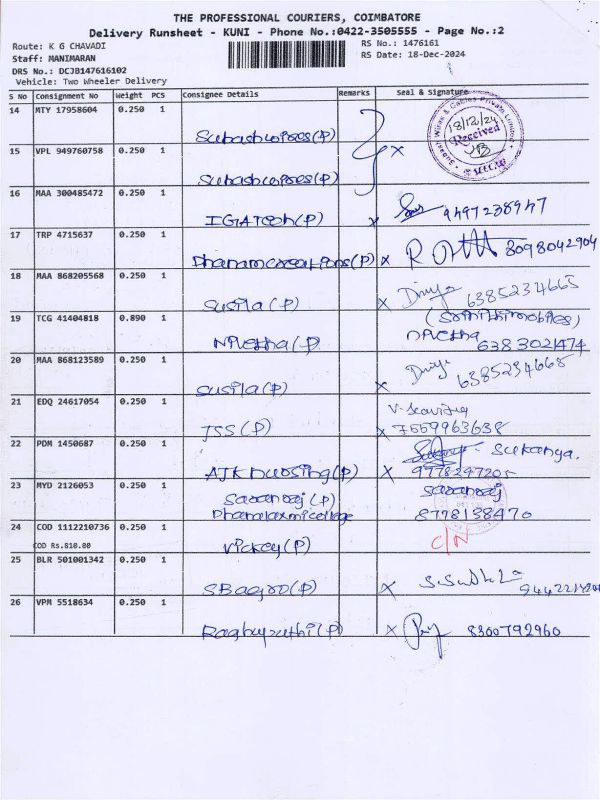 THE PROFESSIONAL COURIERS, COIMBATORE
Delivery Runsheet - KUNI - Phone No.:0422-3505555 - Page No.:2
Route: K G CHAVADI
RS No.: 1476161
Staff: MANIMARAN
RS Date: 18-Dec-2024
DRS No.: DCJB147616102
Vehicle: Two Wheeler Delivery
S No Consignment No Weight PCS Consignee Details Remarks Seal & Signature
14 MTY 17958604 0.250 1
Wires & Cables Private Limited
18/12/24
Received
15 VPL 949760758 0.250 1 x
16 MAA 300485472 0.250 1
IGATech(P) x 9497238947
17 TRP 4715637 0.250 1
Dhanamcreations(P) x 8098042904
18 MAA 868205568 0.250 1
Susila(P) x Divya 6385234665
19 TCG 41404818 0.890 1
Nivetha(P) Nivetha 6383021474
20 MAA 868123589 0.250 1
Susila(P) x Divya 6385234665
21 EDQ 24617054 0.250 1
JSS(P) x 7559963638
22 PDM 1450687 0.250 1 Sukanya.
AJK nursing(P) x
23 MYD 2126053 0.250 1
Saranraj(P) Saranraj
Dhanalaxmicollege 8778138470
24 COD 1112210736 0.250 1
COD Rs.810.00 Vickey(P) C/N
25 BLR 501001342 0.250 1
SBagro(P) x
26 VPM 5518634 0.250 1
Raghupathi(P) x 8300792960